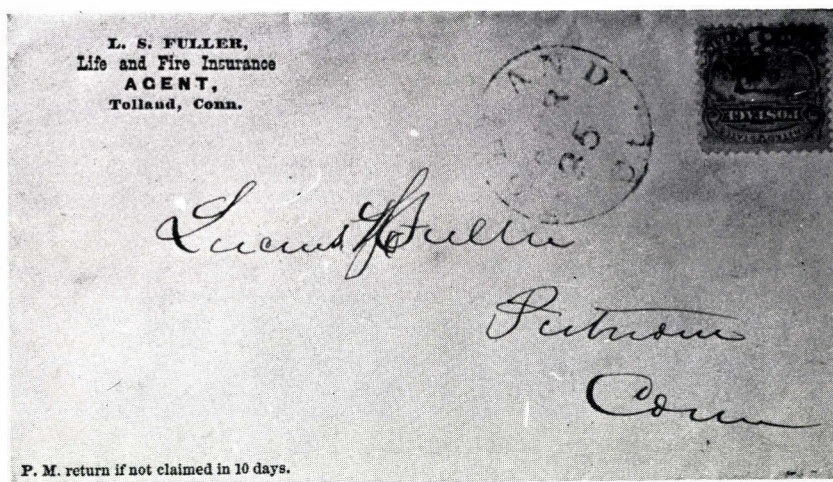 L. S. FULLER,
Life and Fire Insurance
AGENT,
Tolland, Conn.
25
POSTAGE
Lucius H Fuller
Putnam
Conn
P. M. return if not claimed in 10 days.